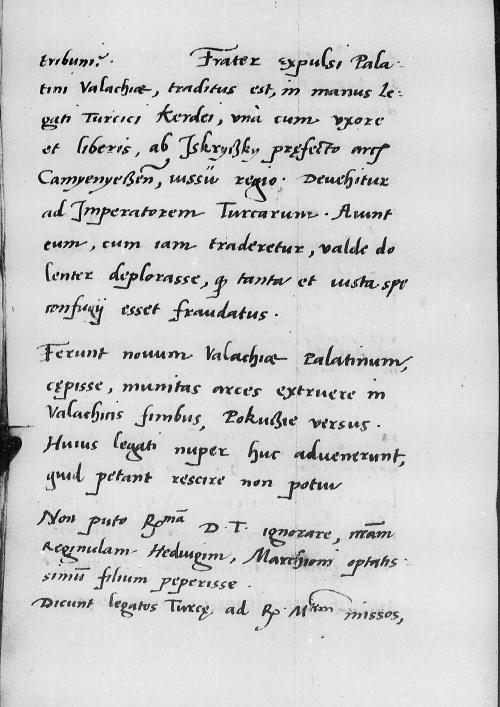 tribunis. Frater expulsi Pala-
tini Valachiæ, traditus est, in manus le-
gati Turcici Kerdei, unà cum uxore
et liberis, ab Jskryßky pręfecto arcis
Camyenyeßen, iussu regio. Devehitur
ad Jmperatorem Turcarum. Aiunt
eum, cum iam traderetur, valde do
lenter deplorasse, q tanta et iusta spe
confugij esset fraudatus.
Ferunt novum Valachiæ Palatinum,
cępisse, munitas arces extruere in
Valachicis finibus, Pokußie versus.
Huius legati nuper huc advenerunt,
quid petant rescire non potui
Non puto Rmã D. T. ignorare, nram
Reginulam Hedvigim, Marchioni optatis-
simũ filium peperisse.
Dicunt legatos Turcę, ad R. Mtem missos,